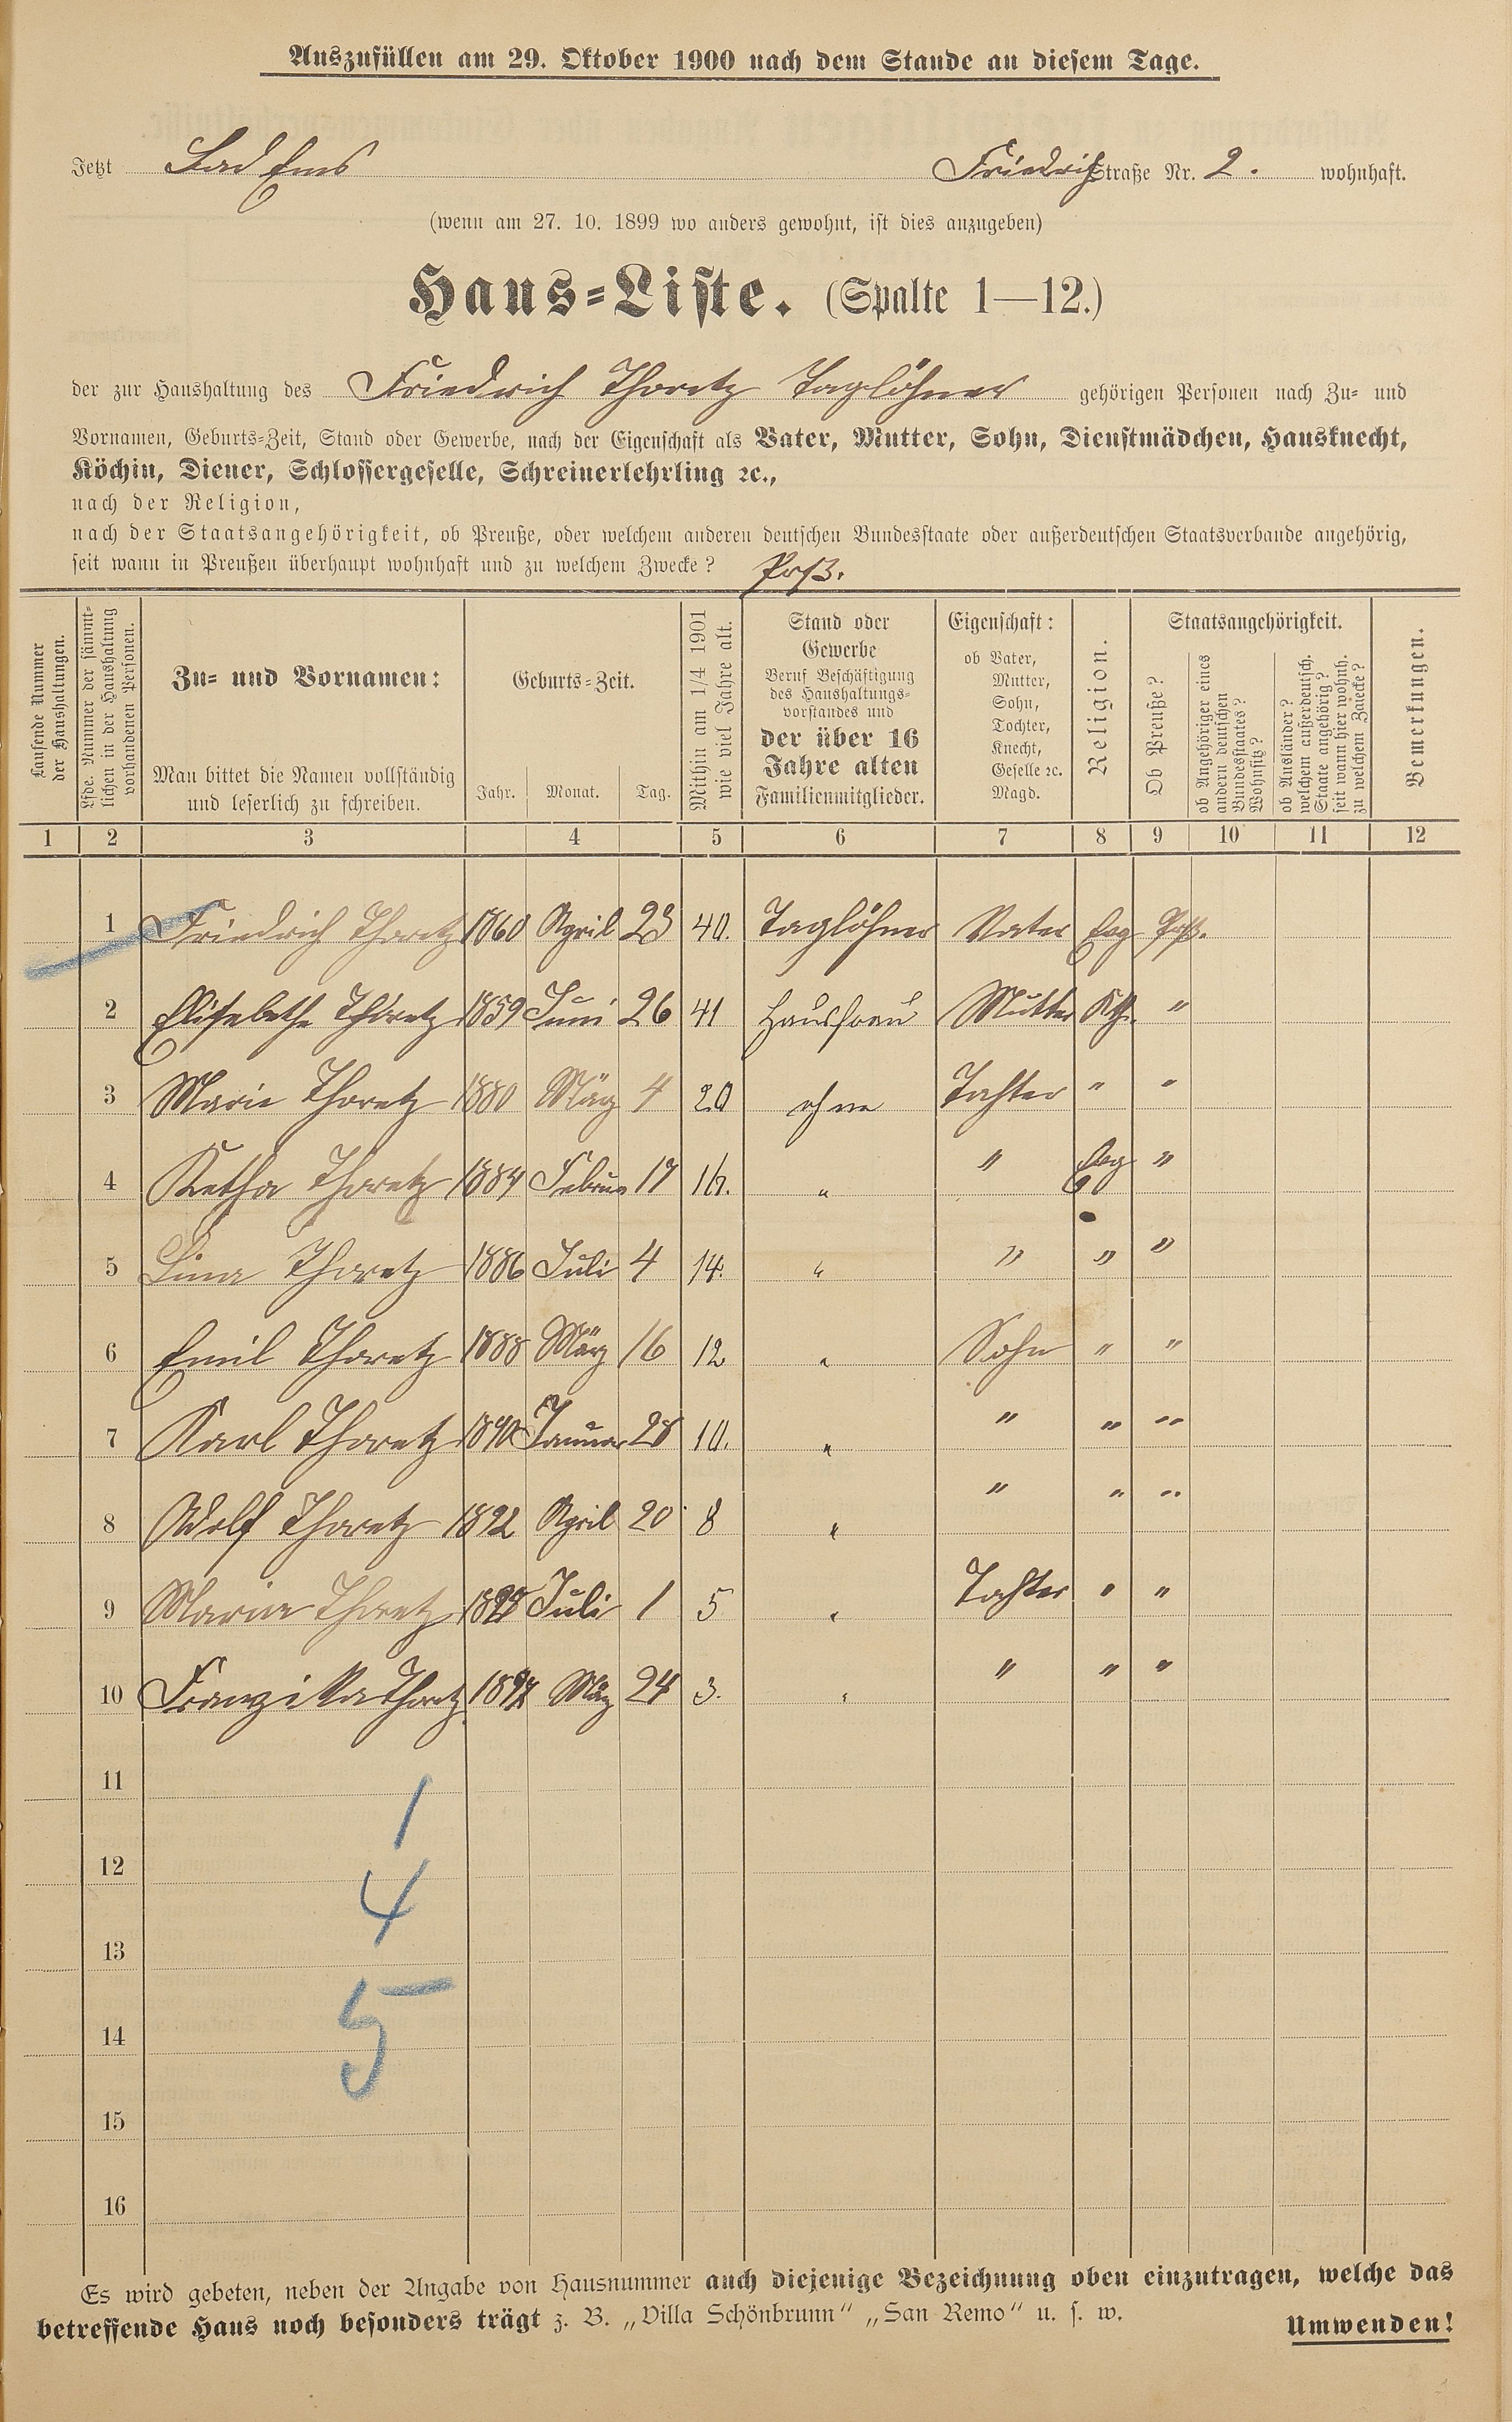 Auszufüllen am 29. Oktober 1900 nach dem Stande an diesem Tage.
Jetzt Bad Ems Friedrichstraße Nr. 2. wohnhaft.
(wenn am 27. 10. 1899 wo anders gewohnt, ist dies anzugeben)
Haus-Liste. (Spalte 1—12.)
der zur Haushaltung des Friedrich Thoretz Taglöhner gehörigen Personen nach Zu- und
Vornamen, Geburts-Zeit, Stand oder Gewerbe, nach der Eigenschaft als Vater, Mutter, Sohn, Dienstmädchen, Hausknecht,
Köchin, Diener, Schlossergeselle, Schreinerlehrling ꝛc.,
nach der Religion,
nach der Staatsangehörigkeit, ob Preuße, oder welchem anderen deutschen Bundesstaate oder außerdeutschen Staatsverbande angehörig,
seit wann in Preußen überhaupt wohnhaft und zu welchem Zwecke? Prß.
Laufende Nummer
der Haushaltungen.
Lfde. Nummer der sämmt-
lichen in der Haushaltung
vorhandenen Personen.
Zu- und Vornamen:
Man bittet die Namen vollständig
und leserlich zu schreiben.
Geburts-Zeit.
Jahr. Monat. Tag.
Mithin am 1/4 1901
wie viel Jahre alt.
Stand oder
Gewerbe
Beruf Beschäftigung
des Haushaltungs-
vorstandes und
der über 16
Jahre alten
Familienmitglieder.
Eigenschaft:
ob Vater,
Mutter,
Sohn,
Tochter,
Knecht,
Geselle ꝛc.
Magd.
Religion.
Staatsangehörigkeit.
Ob Preuße?
ob Angehöriger eines
andern deutschen
Bundesstaates?
Wohnsitz?
ob Ausländer?
welchem außerdeutsch.
Staate angehörig?
seit wann hier wohnh.
zu welchem Zwecke?
Bemerkungen.
1 2 3 4 5 6 7 8 9 10 11 12
1 Friedrich Thoretz 1860 April 23 40. Taglöhner Vater Evg Prß.
2 Elisabethe Thoretz 1859 Juni 26 41 Hausfrau Mutter Kth. "
3 Marie Thoretz 1880 März 4 20 ohne Tochter " "
4 Ketha Thoretz 1884 Februar 17 16. " " Evg "
5 Lina Thoretz 1886 Juli 4 14. " " " "
6 Emil Thoretz 1888 März 16 12 " Sohn " "
7 Karl Thoretz 1890 Januar 28 10. " " " "
8 Adolf Thoretz 1892 April 20 8 " " " "
9 Maria Thoretz Juli 1 5 " Tochter " "
10 Franziska Thoretz 1897 März 24 3. " " " "
11
1
12
4
13
5
14
15
16
Es wird gebeten, neben der Angabe von Hausnummer auch diejenige Bezeichnung oben einzutragen, welche das
betreffende Haus noch besonders trägt z. B. „Villa Schönbrunn" „San Remo" u. s. w.
Umwenden!